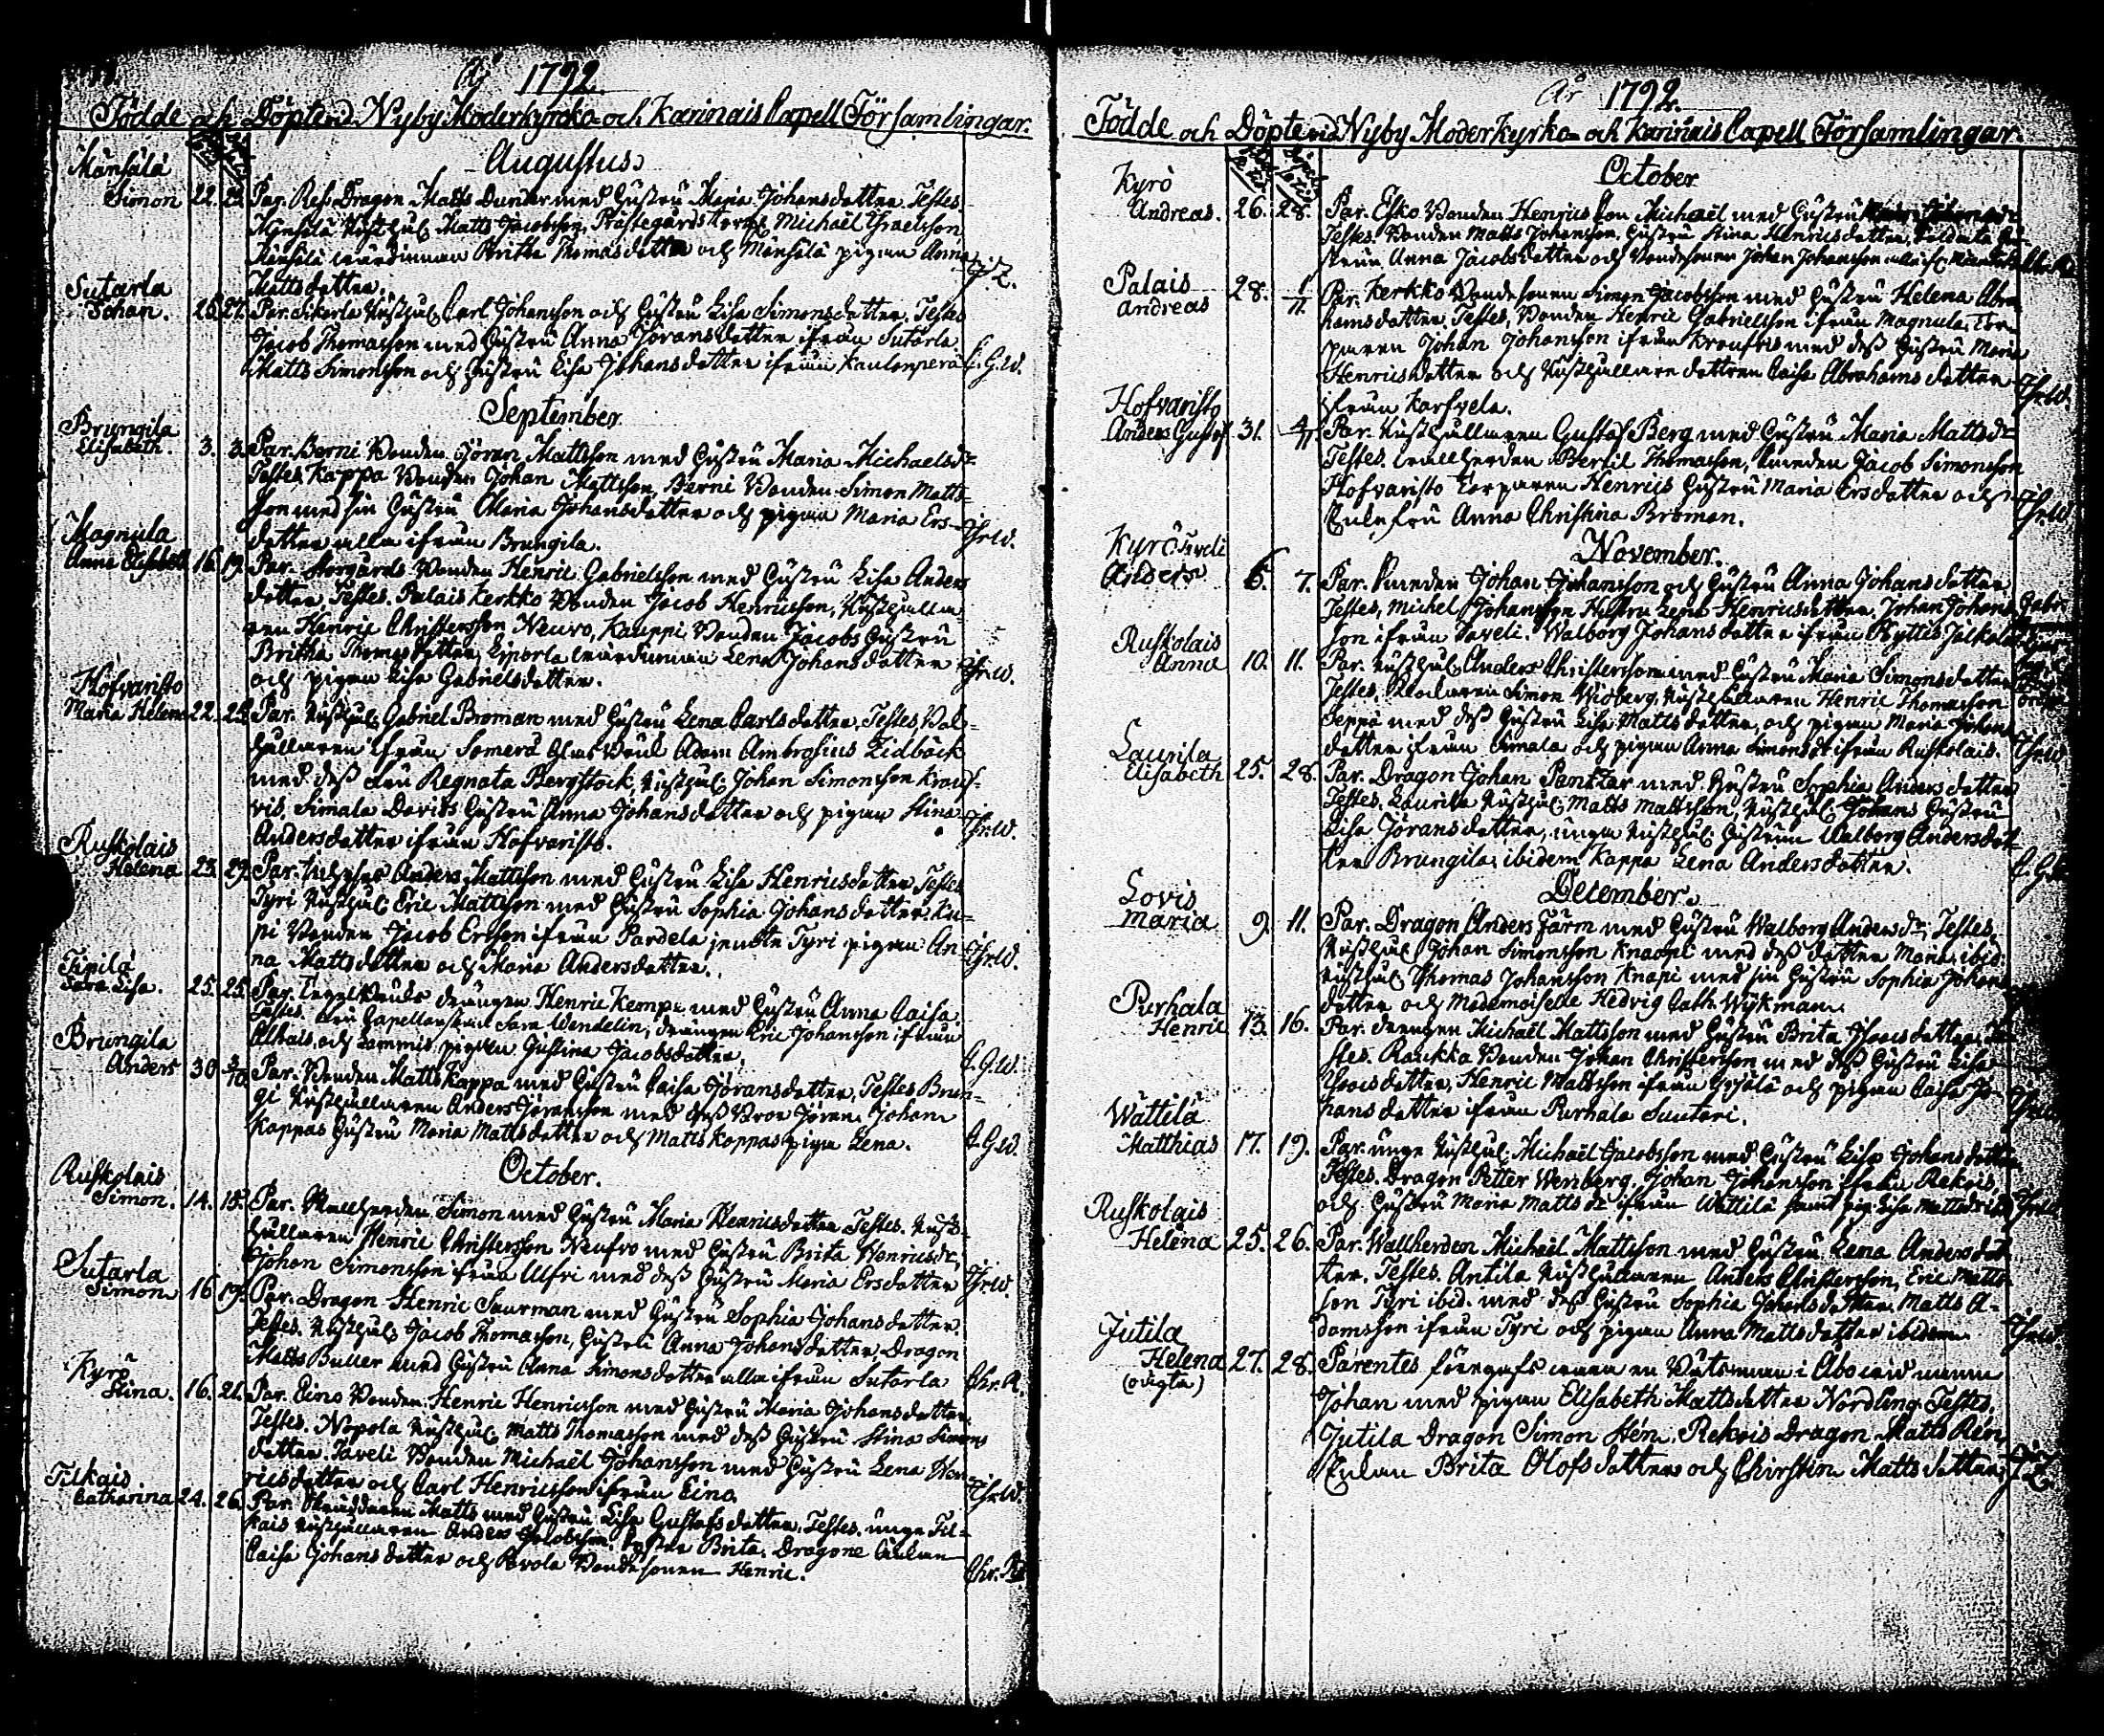 År 1792.
Födde och Döpte i Nyby Moderkyrcko och Karinais Capell Församlingar.
Augustus
Mänsälä
Simon 22. 23. Par. Res. Dragon Matts Dunder med hustru Maria Johansdotter. Testes.
Mänsälä Rusthål. Matts Jacobsson, Prästegårds Michaël Israelsson
Britha Thomasdotter och Mänsälä pigan Anna
Mattsdotter.
Sutarla
Johan. 27. Par. Rusthål. Carl Johansson och hustru Lisa Simonsdotter. Testes
Jacob Thomasson med hustru Anna Jöransdotter ifrån Sutarla
Matts Simonsson och hustru Lisa Johansdotter ifrån Kaulanperä C.G.W.
September
Brungila
Elisabeth. 3. 3. Par. Berni Bonden Jöran Mattsson med hustru Maria Michaelsdr
Testes, Kappa Bonden Johan Mattsson, Berni Bonden Simon Matts-
son med sin hustru Maria Johansdotter och pigan Maria Ers-
dotter alla ifrån Brungila.
Magnula
Anna Elisabeth 16. 19. Par. Bonden Henric Gabrielsson med hustru Lisa Anders
dotter, Testes. Palais Kerkko Bonden Jacob Henricsson, Rusthålla-
ren Henric Christersson Neuvo, Kauppi Bonden Jacobs hustru
Britha Thomasdotter, Lena Johansdotter
och pigan Lisa Gabrielsdotter.
Hofvaristo
Maria Helena 22. 25. Par. Rusthål. Gabriel Broman med hustru Lena Carlsdotter, Testes,
ifrån Somerå Glas Bruk Adam Ambrosius Lidbäck
med dess Fru Regnata Bergstock, Rusthål. Johan Simonsson Krouf-
vis, Simala Davids hustru Anna Johansdotter och pigan Stina
Andersdotter ifrån Hofvaristo.
Ruskolais
Helena 23. 29. Par. Anders Mattsson med hustru Lisa Henricsdotter Testes
Tyri Rusthål. Eric Mattsson med hustru Sophia Johansdotter,
Bonden Jacob Ersson ifrån Pardela jemte Tyri pigan An-
na Mattsdotter och Maria Andersdotter.
Tipilä
Sara Lisa. 25. 25. Par. Tegelbruks drängen Henric Kempe med hustru Anna Caisa
Testes. Fru Capellanskan Sara Wendelin, drängen Eric Johansson ifrån
och pigan Gustina Jacobsdotter. C.G.W.
Brungila
Anders 30 3/10. Par. Bonden Matts Kappa med hustru Caisa Jöransdotter, Testes Brun-
gi Rusthållaren Anders Jöransson med dess Bror Jöran, Johan
Kappas hustru Maria Mattsdotter och Matts Kappas piga Lena. C.G.W.
October.
Ruskolais
Simon. 14. 15. Par. Simon med hustru Maria Henricsdotter Testes. Rust-
hållaren Henric Christersson Neufvo med hustru Brita Henricsdr,
Johan Simonsson ifrån Ulfri med dess hustru Maria Ersdotter
Sutarla
Simon 16 19. Par. Dragon Henric Saurman med hustru Sophia Johansdotter.
Testes. Rusthål. Jacob Thomasson, hustru Anna Johansdotter, Dragon
Matts Buller med hustru Anna Simonsdotter alla ifrån Sutarla Chr. R.
Kyrö
Stina. 16. 21. Par. Eino Bonden Henric Henricsson med hustru Maria Johansdotter.
Testes. Nopola Rusthål. Matts Thomasson med dess hustru Stina Simons
dotter. Taveli Bonden Michaël Johansson med hustru Lena Hen-
ricsdotter och Carl Henricsson ifrån Eino.
Tilkais
Catharina 24. 26. Par. Skräddaren Matts med hustru Lisa Gustafsdotter. Testes. unge Til-
kais Rusthållaren Anders Jacobsson, hustru Brita. Dragone Enkan
Caisa Johansdotter och Pavola Bondesonen Henric. Chr. R.
År 1792.
Födde och Döpte i Nyby Moderkyrko- och Karinais Capell Församlingar.
October
Kyrö
Andreas. 26. 28. Par. Esko Bonden Henrics Son Michaël med hustru
Testes. Bonden Matts Johansson, hustru Stina Henricsdotter, Soldats hu-
strun Anna Jacobsdotter och Bondesonen Johan Johansson
Palais
Andreas 28. 1/11. Par. Kerkko Bondesonen Simon Jacobsson med hustru Helena Abra
hamsdotter. Testes, Bonden Henric Gabrielsson ifrån Magnula. Tor-
paren Johan Johansson ifrån Kroufvis med dess hustru Maria
Henricsdotter och Rusthållare dottren Caisa Abrahamsdotter
ifrån Karfvela.
Hofvaristo
Anders Gustaf 31. 4/11 Par. Rusthållaren Gustaf Berg med hustru Maria Mattsdr
Testes. Bertil Thomasson, Smeden Jacob Simonsson
Hofvaristo Torparen Henrics hustru Maria Ersdotter och
Enkefru Anna Christina Broman.
November.
Kyrö Taveli
Anders 6. 7. Par. Smeden Johan Johansson och hustru Anna Johansdotter
Testes, Michel Johansson Hustru Lena Henricsdotter. Johan Johans
son ifrån Taveli. Walborg Johansdotter ifrån
Ruskolais
Anna 10. 11. Par. Rusthål. Anders Christersson med hustru Maria Simonsdotter
Testes. Simon Widberg, Rusthållaren Henric Thomasson
Seppä med dess hustru Lisa Mattsdotter, och pigan Maria Johans
dotter ifrån Simala och pigan Anna Simonsdr ifrån Ruskolais.
Laurila
Elisabeth 25. 28. Par. Dragon Johan Pantzar med hustru Sophia Andersdotter
Testes. Laurila Rusthål. Matts Mattsson, Rusthål. Johans hustru
Lisa Jöransdotter, unga Rusthål. hustrun Walborg Andersdot-
ter Brungila, ibidem Kappa Lena Andersdotter. C.G.W.
December.
Lovis
Maria 9. 11. Par. Dragon Anders Färm med hustru Walborg Andersdr, Testes.
Rusthål. Johan Simonsson Knaapi med dess dotter Maria ibid.
Rusthål. Thomas Johansson Knapi med sin hustru Sophia Johans
dotter och Mademoiselle Hedvig Cath. Wykman.
Purhala
Henric 13. 16. Par. drengen Michaël Mattsson med hustru Brita Isacsdotter. Te-
stes. Raukka Bonden Johan Christersson med dess hustru Lisa
Isacsdotter, Henric Mattsson ifrån och pigan Caisa Jo-
hansdotter ifrån Purhala Suutari.
Wättilä
Matthias 17. 19. Par. unge Rusthål. Michaël Jacobsson med hustru Lisa Johansdotter
Testes. Dragon Petter Wenberg. Johan Johansson ifrån Rekois
och hustru Maria Mattsdr ifrån Wättilä samt pig. Lisa Mattsdr ibid.
Ruskolais
Helena 25. 26. Par. Wallherden Michaël Mattsson med hustru Lena Andersdot
ter. Testes. Antila Rusthållaren Anders Christersson, Eric Matts
son Tyri ibid. med dess hustru Sophia Johansdotter, Matts A-
damsson ifrån Tyri och pigan Anna Mattsdotter ibidem.
Jutila
Helena 27. 28. Parentes föregafs vara en Båtsman i Åbo vid namn
(oägta)
Johan med pigan Elisabeth Mattsdotter Nordling. Testes.
Jutila Dragon Simon Hén. Rekois Dragon Matts Rén
Enkan Brita Olofsdotter och Chirstin Mattsdotter